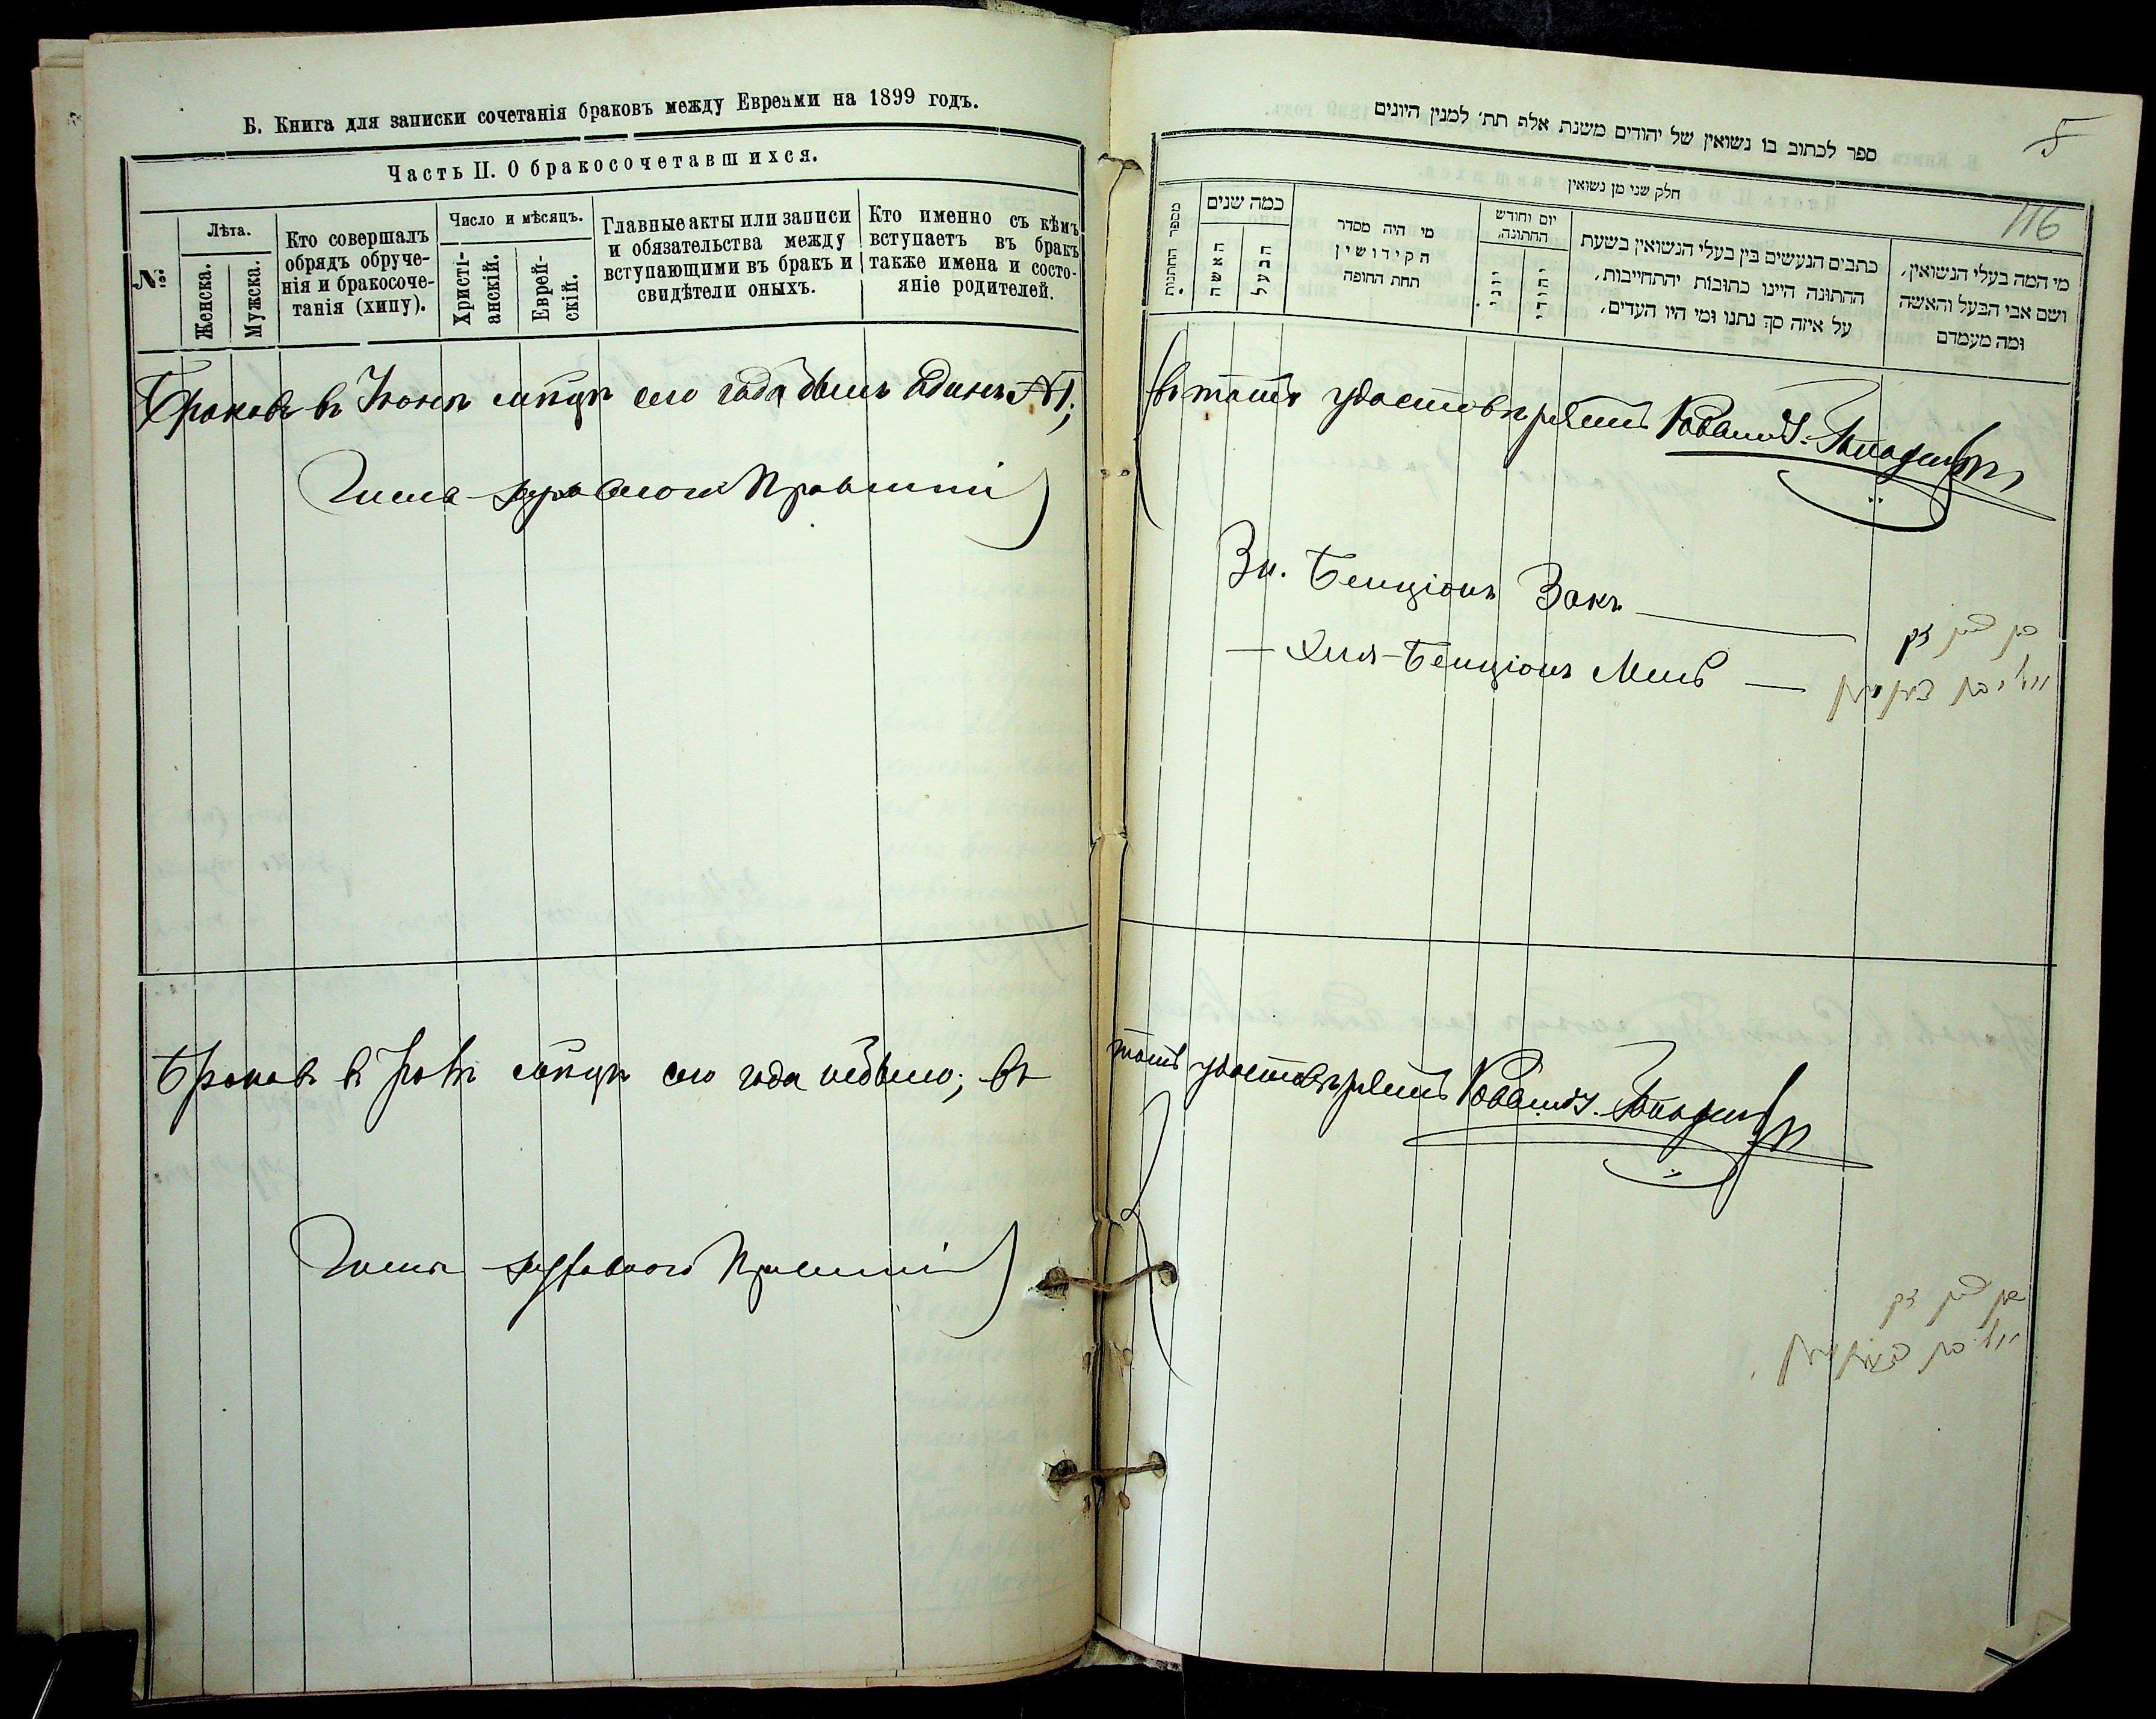 Б. Книга для записки сочетанія браковъ между Евреями на 1899 годъ.
Часть II. О бракосочетавшихся.
№
Лѣта.
Женска.
Мужска.
Кто совершалъ
обрядъ обруче-
нія и бракосоче-
танія (хипу).
Число и мѣсяцъ.
Христі-
анскій.
Еврей-
скій.
Главные акты или записи
и обязательства между
вступающими въ бракъ и
свидѣтели оныхъ.
Кто именно съ кѣмъ
вступаетъ въ бракъ
также имена и состо-
яніе родителей.
Браковъ въ Іюнѣ мѣсяцѣ сего года былъ одинъ №1;
Члены духовного Правленія
Браковъ въ мѣсяцѣ сего года небыло; въ
Члены духовного Правленія
ספר לכתוב בו נשואין של יהודים משנת אלף תת׳ למנין היונים
5
116
חלק שני מן נשואין
מספר החתונות
כמה שנים
האשה
הבעל
מי היה מסדר
הקידושין
תחת החופה
יום וחודש
החתונה.
יוני.
יהודי.
כתבים הנעשים בין בעלי הנשואין בשעת
החתונה היינו כתובות יהתחייבות,
על איזה סך נתנו ומי היו העדים,
מי המה בעלי הנשואין,
ושם אבי הבעל והאשה
ומה מעמדם
въ томъ удостовѣряетъ Раввинъ
Зн. Бенціонъ Закъ
Бенціонъ
בן ציון זק
томъ удостовѣряетъ Раввинъ
בן ציון זק